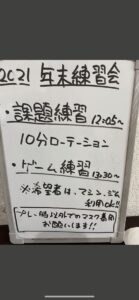 2021 年末練習会
・課題練習 12:05〜
10分ローテーション
・ゲーム練習 13:30〜
※希望者は、マシン、ジム
利用OK!!
プレー時以外でのマスク着用
お願いします!!